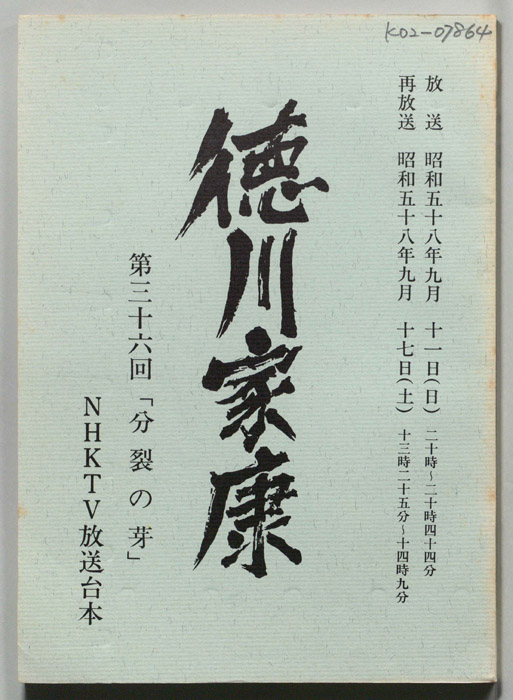 K02-07864
放送 昭和五十八年九月 十一日(日) 二十時~二十時四十四分
再放送 昭和五十八年九月 十七日(土) 十三時二十五分~十四時九分
徳川家康
第三十六回「分裂の芽」
NHKTV放送台本